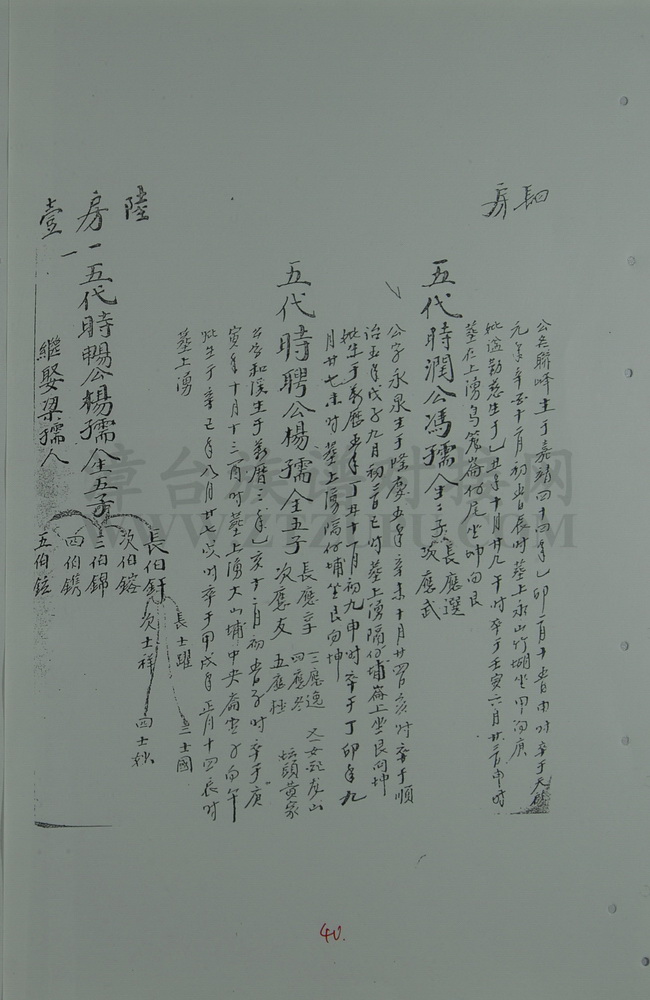 長房
公名聯峰生于嘉靖四十四年乙卯二月十五日申时卒于天啟
元年辛酉十二月初五日辰时墓上永山竹湖坐甲向庚
妣謚勤慈生于乙丑年十月廿九午时卒于壬寅六月廿三日申时
墓在上湧烏篤崙仔尾坐坤向艮
五代時潤公馮孺仝二子 長應選 次應武
公字永泉生于隆慶五年辛未十月廿四日亥时卒于順
治五年戊子九月初三日巳时墓上湧隔仔埔崙上坐艮向坤
妣生于萬歷五年丁丑十一月初九申时卒于丁卯年九
月廿七未时墓上湧隔仔埔坐艮向坤
五代時聘公楊孺仝五子 長應辛 次應友 三應逸 四應冬 五應桂
坛頭黄家
公字和溪生于萬曆三年乙亥十二月初五日子时卒于庚
寅年十月十三酉时墓上湧大山埔中央崙坐子向午
妣生于辛巳年八月廿七亥时卒于甲戌年正月十四辰时
墓上湧
陸房壹
一五代時暢公楊孺仝五子
長伯釬 次伯鎔 三伯錦 四伯鐫 五伯鉉
長士躍 次士祥 三士國 四士妙
繼娶梁孺人
章台族谱对接网
WWW.ZTZUPU.COM
40.